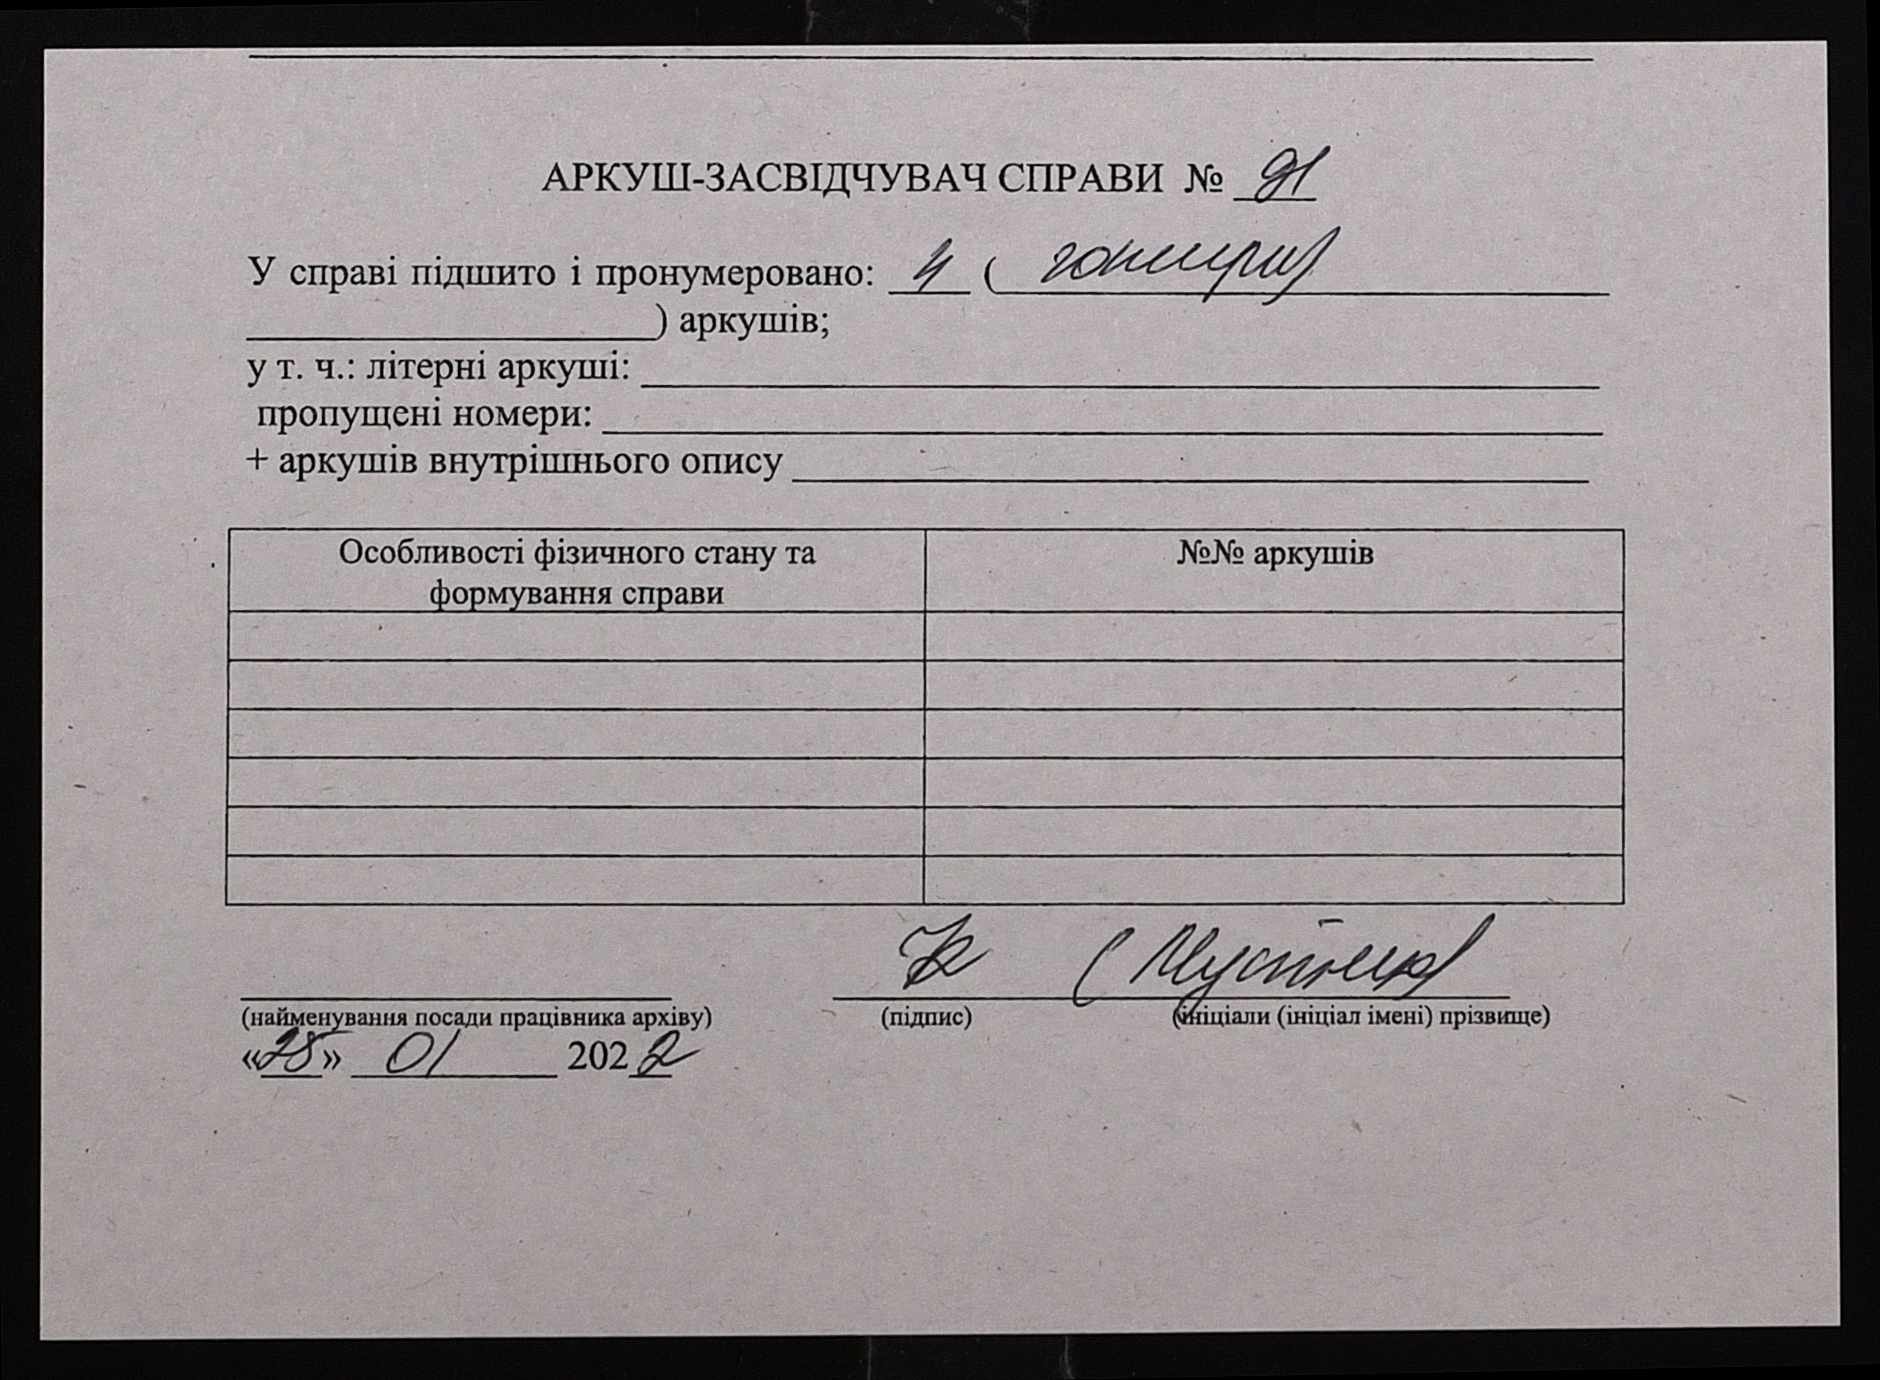 АРКУШ-ЗАСВІДЧУВАЧ СПРАВИ № 91
У справі підшито і пронумеровано: 4 ( чотири)
) аркушів;
у т. ч.: літерні аркуші:
пропущені номери:
+ аркушів внутрішнього опису
Особливості фізичного стану та
формування справи
№№ аркушів
(найменування посади працівника архіву)
(підпис)
(ініціали (ініціал імені) прізвище)
«28» 01 2022